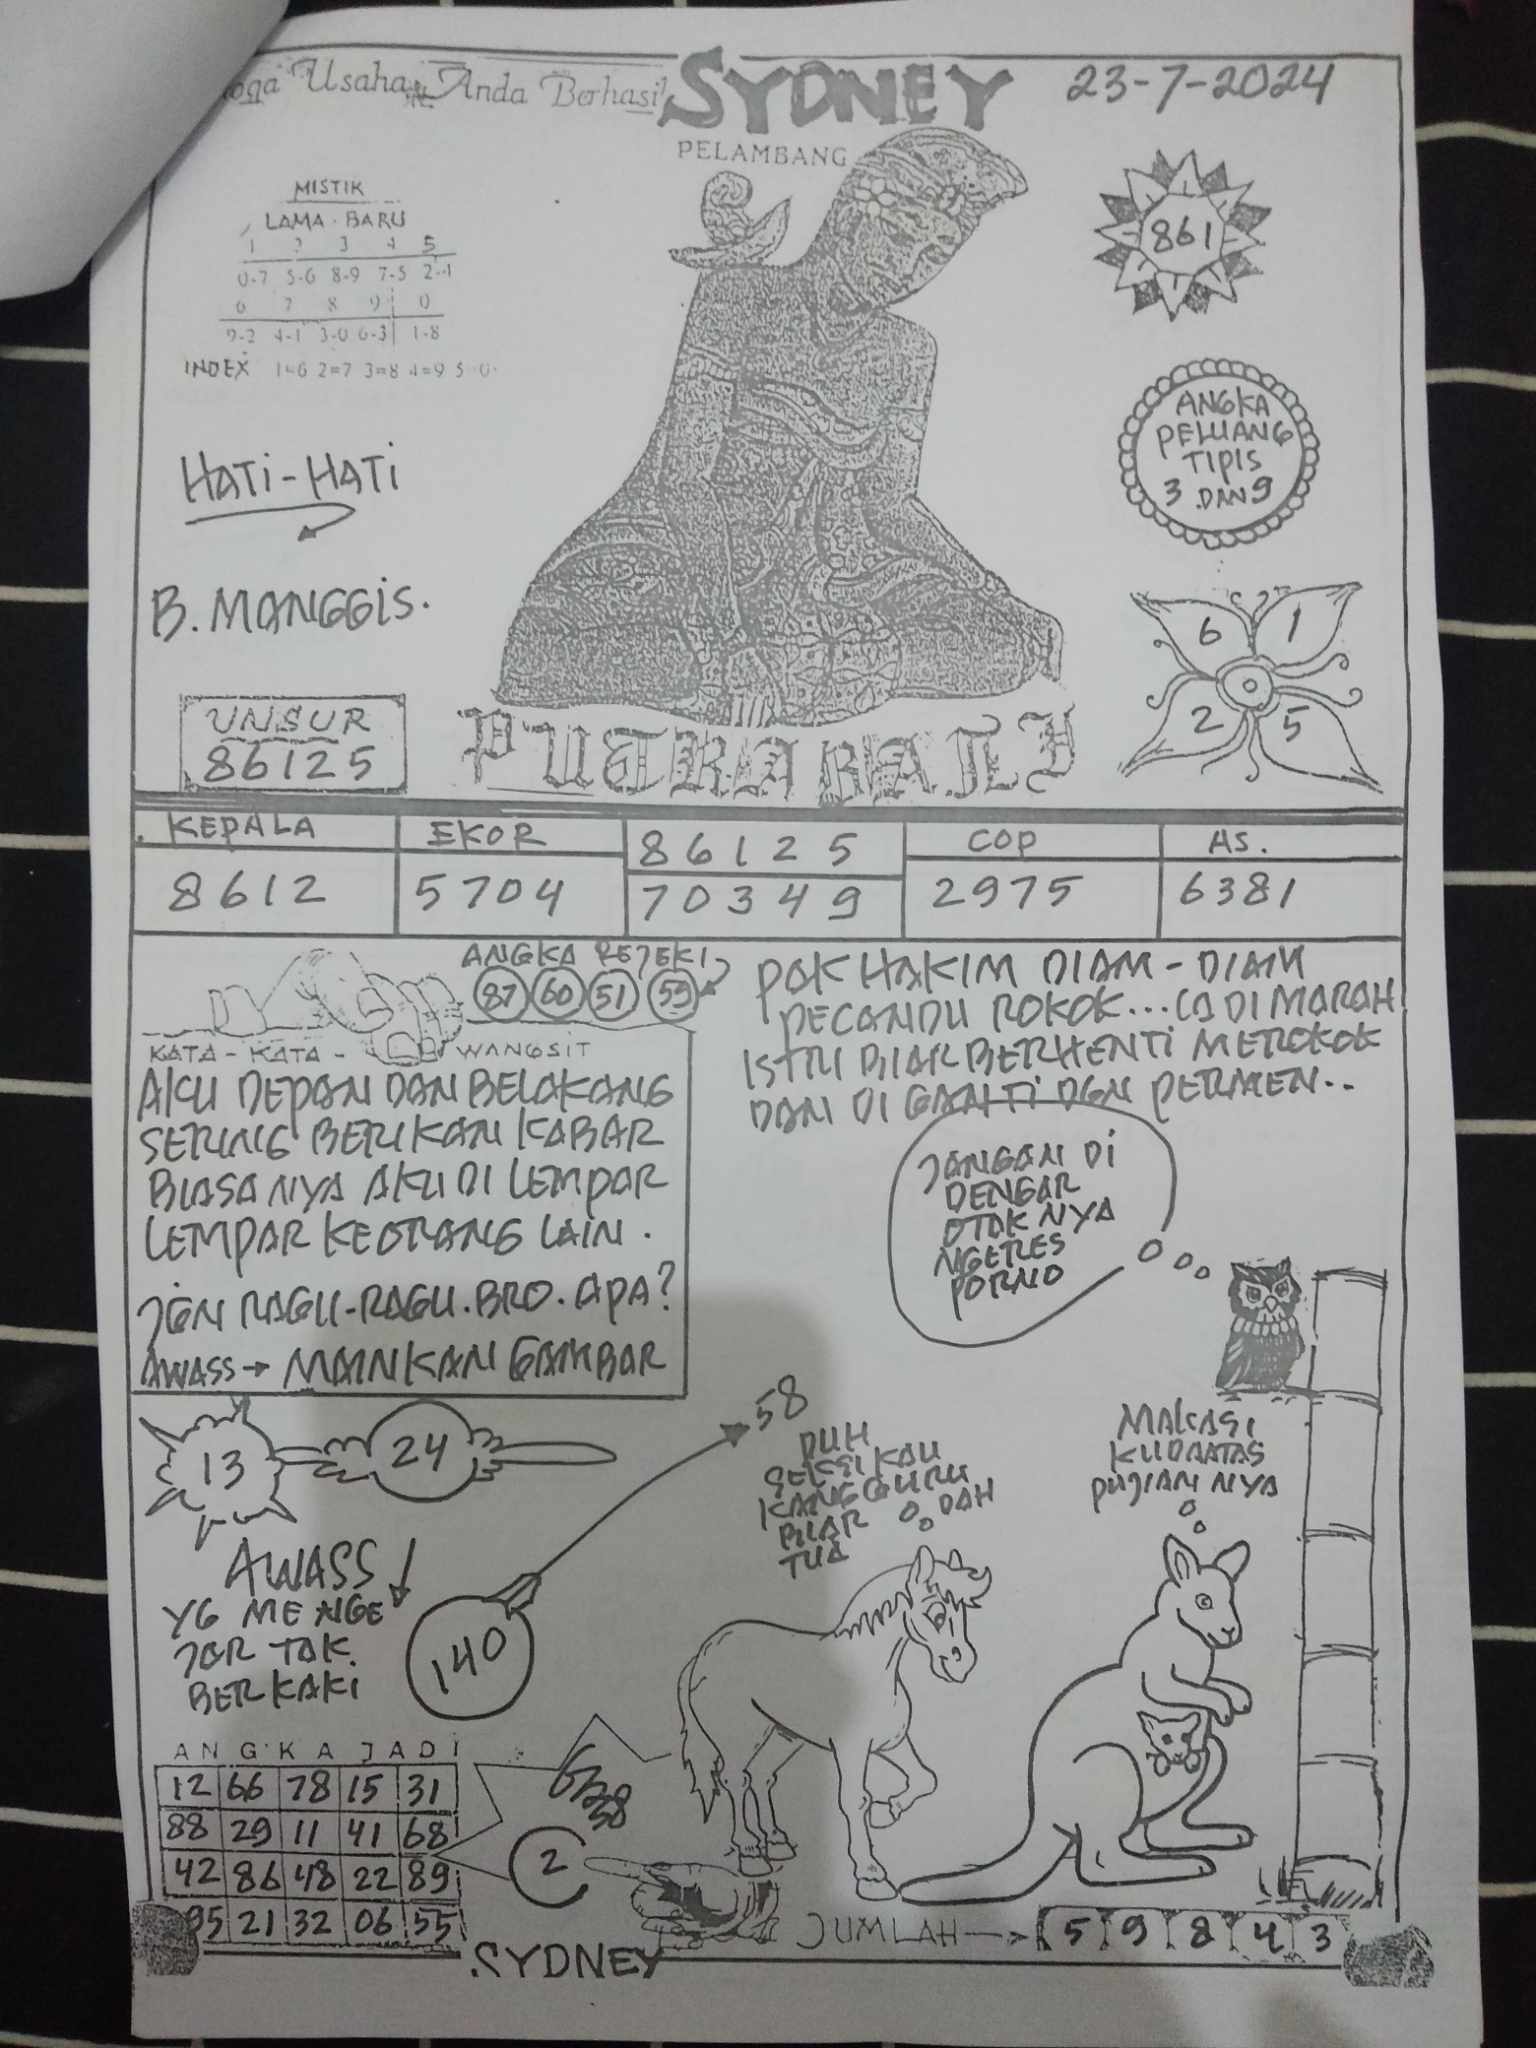 Usaha Anda Berhasil
SYDNEY
23-7-2024
PELAMBANG
MISTIK
LAMA · BARU
1 2 3 4 5
0-7 5-6 8-9 7-5 2-4
6 7 8 9 0
9-2 4-1 3-0 6-3 1-8
INDEX 1=6 2=7 3=8 4=9 5=0
861
ANGKA
PELUANG
TIPIS
3 DAN 9
HATI-HATI
B. MANGGIS.
6 1
2 5
UNSUR
86125
PUTRA BALI
KEPALA EKOR 86125 COP AS.
8612 5704 70349 2975 6381
ANGKA REJEKI
87 60 51 59
KATA - KATA - WANGSIT
AKU DEPAN DAN BELAKANG
SERING BERIKAN KABAR
BIASANYA AKU DI LEMPAR
LEMPAR KEORANG LAIN.
JGN RAGU-RAGU. BRO. APA?
AWASS → MAINKAN GAMBAR
PAK HAKIM DIAM-DIAM
PECANDU ROKOK... DI MARAH
ISTRI BIAR BERHENTI MEROKOK
DAN DI GANTI DGN PERMEN..
JANGAN DI
DENGAR
OTAK NYA
NGERES
PORNO
13
24
58
DUH
SEKSI KAU
KANGGURU
BIAR DAH
TUA
MAKASI
KUDA ATAS
PUJIAN NYA
AWASS
YG MENGE
JAR TAK
BERKAKI
140
ANGKA JADI
12 66 78 15 31
88 29 11 41 68
42 86 48 22 89
95 21 32 06 55
2
SYDNEY
JUMLAH → 5 9 8 4 3